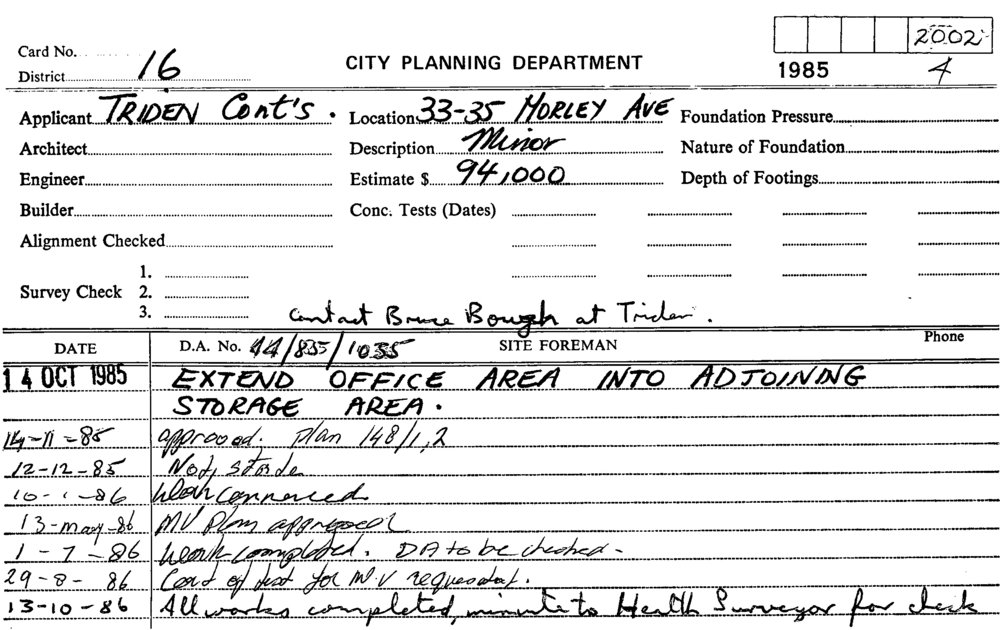 Card No.
District 16
CITY PLANNING DEPARTMENT
2002
1985 4
Applicant TRIDEN Cont's. Location 33-35 MORLEY AVE Foundation Pressure
Architect Description Minor Nature of Foundation
Engineer Estimate $ 94,000 Depth of Footings
Builder Conc. Tests (Dates)
Alignment Checked
1.
Survey Check 2.
3. Contact Bruce Bough at Triden.
DATE D.A. No. 44/835/1035 SITE FOREMAN Phone
14 OCT 1985 EXTEND OFFICE AREA INTO ADJOINING
STORAGE AREA.
14-11-85 approved. plan 148/1,2
12-12-85 Not
10-1-86 Work commenced
13-may-86 MV Plan approved
1-7-86 Work completed. DA to be checked-
29-8-86 Cert of test for M.V requested.
13-10-86 All works completed, minute to Health Surveyor for check